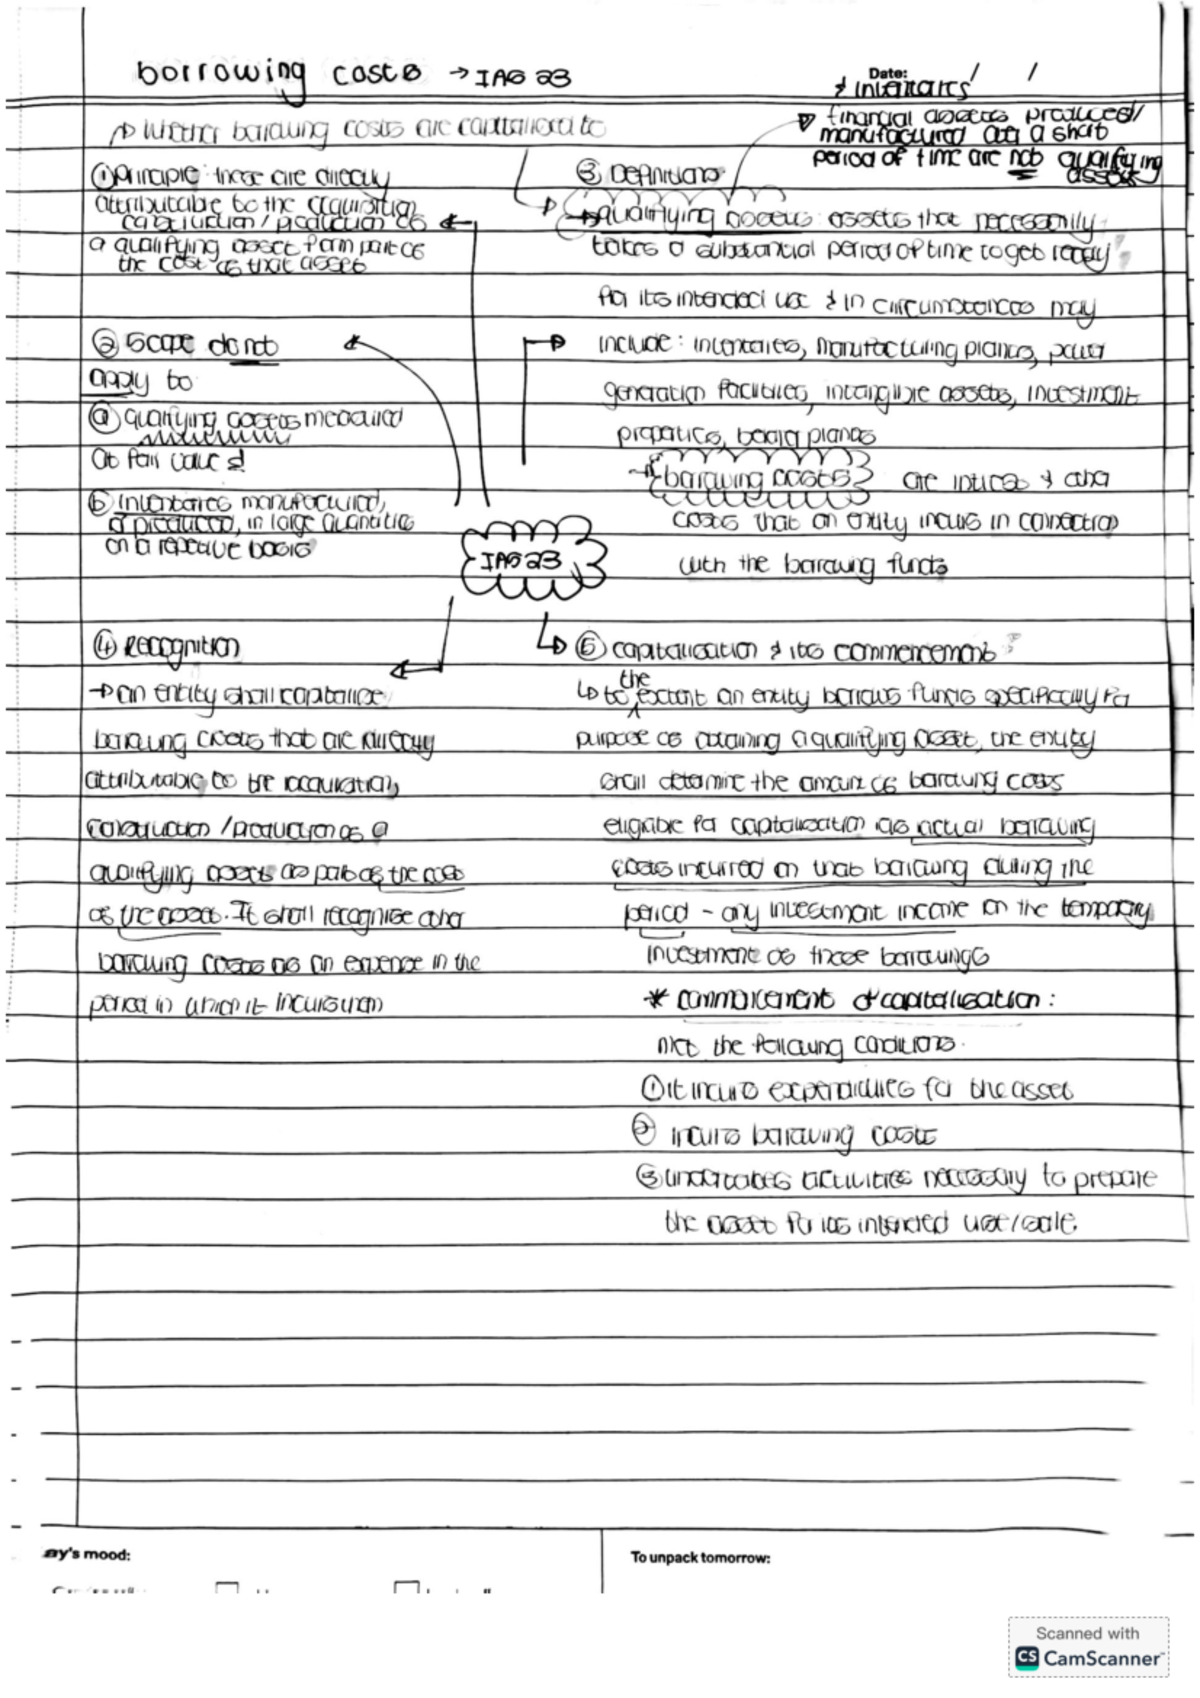 borrowing costs → IAS 23
Date: / /
& inventories
financial assets produced/
manufactured over a short
period of time are not qualifying
assets
→ Whether borrowing costs are capitalised to
① principle: those are directly
attributable to the acquisition
construction / production of
a qualifying asset form part of
the cost of that asset
② Scope do not
apply to
ⓐ qualifying assets measured
at fair value &
ⓑ inventories manufactured,
or produced, in large quantities
on a repetitive basis
③ Definitions
→ qualifying assets: assets that necessarily
takes a substantial period of time to get ready
for its intended use & in circumstances may
include: inventories, manufacturing plants, power
generation facilities, intangible assets, investment
properties, bearer plants
→ borrowing costs are interest & other
costs that an entity incurs in connection
with the borrowing funds
IAS 23
④ Recognition
→ an entity shall capitalise
borrowing costs that are directly
attributable to the acquisition,
construction / production of a
qualifying assets as part of the cost
of the asset. It shall recognise other
borrowing costs as an expense in the
period in which it incurs them
⑤ capitalisation & its commencement
↳ to the extent an entity borrows funds specifically for
purpose of obtaining a qualifying asset, the entity
shall determine the amount of borrowing costs
eligible for capitalisation as actual borrowing
costs incurred on that borrowing during the
period - any investment income on the temporary
investment of those borrowings
* commencement of capitalisation:
met the following conditions.
① it incurs expenditures for the asset
② incurs borrowing costs
③ undertakes activities necessary to prepare
the asset for its intended use/sale.
ay's mood:
To unpack tomorrow:
Scanned with
CS CamScanner